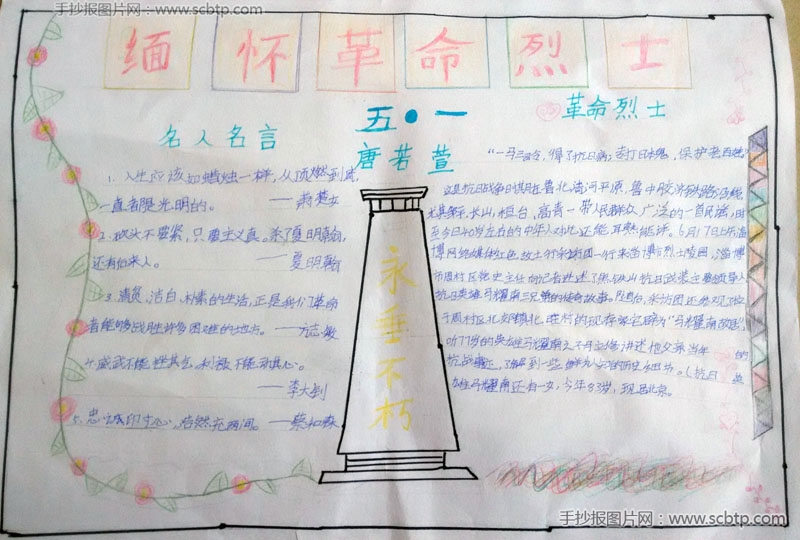 手抄报图片网：www.scbtp.com
缅怀革命烈士
五·一
唐若萱
名人名言
1、人生应该如蜡烛一样，从顶燃到底，
一直都是光明的。——萧楚女
2、砍头不要紧，只要主义真。杀了夏明翰，
还有后来人。——夏明翰
3、清贫、洁白、朴素的生活，正是我们革命
者能够战胜许多困难的地方。——方志敏
4、威武不能
——李大钊
5、忠诚印中心，浩然充两间。——蔡和森
永垂不朽
革命烈士
保护老百姓"
这是抗日战争时期在鲁北清河平原、鲁中胶济铁路沿线，
长山、桓台、高青一带人民群众广泛的一首民谣，时
至今日40岁左右的中年人对此还能耳熟能详。6月17日上午淄
博网络媒体红色故土行采访团一行来淄博市烈士陵园，淄博
市周村区党史主任向记者讲述了黑铁山抗日武装主要领导人
抗日英雄马耀南三兄弟的传奇故事。随后，采访团还参观了位
于周村区北郊镇北旺村的现存家宅群为"马耀南故居"，
听71岁的英雄马耀南之子马立修讲述他父亲当年的
抗战，了解到一些鲜为人知的历史细节。（抗日英
雄马耀南还有一女，今年83岁，现居北京。
手抄报图片网：www.scbtp.com